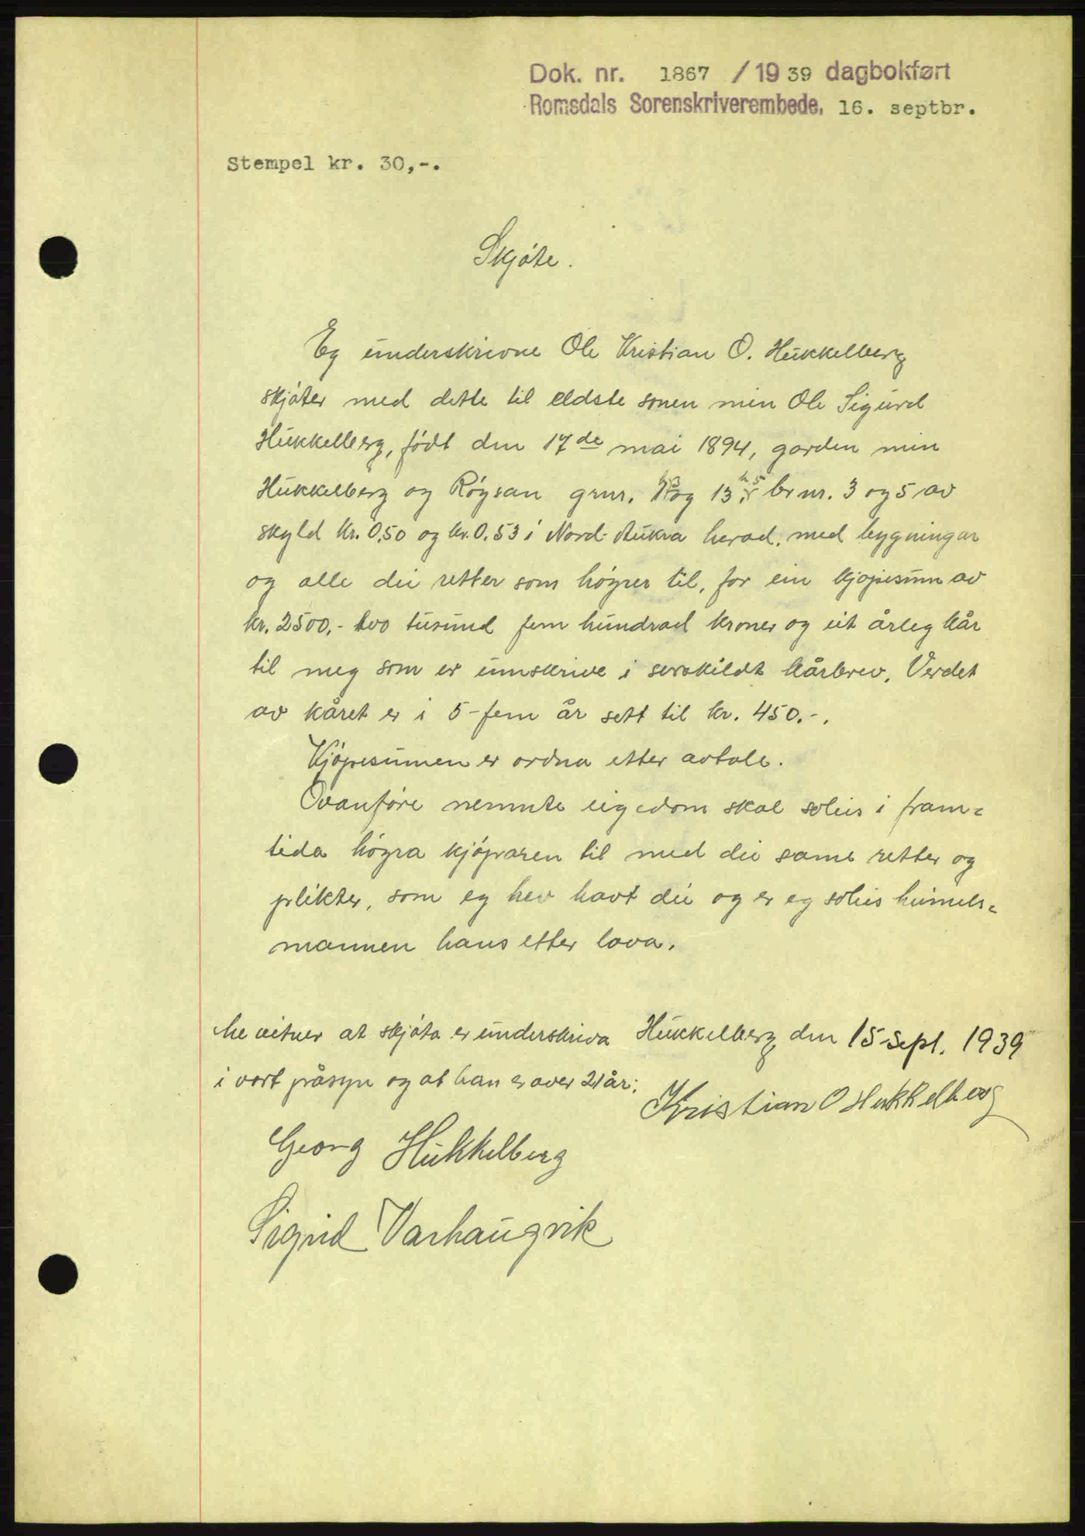 Dok. nr. 1867 / 1939 dagbokført
Romsdals Sorenskriverembede, 16. septbr.
Stempel kr. 30,-.
Skjöte.
Eg underskrivne Ole Kristian O. Hukkelberg
skjöter med dette til eldste sonen min Ole Sigurd
Hukkelberg, födt den 17de mai 1894, garden min
Hukkelberg og Rögsan grnr. og 13 br nr. 3 og 5 av
skyld kr. 0,50 og kr. 0.53 i Nord-Aukra herad, med bygningar
og alle dei retter som högrer til, for ein kjöpesum av
kr. 2500,- tvo tusund fem hundrad kroner og eit årleg kår
til meg som er innskrive i serskildt kårbrev. Verdet
av kåret er i 5-fem år sett til kr. 450.-.
Kjöpesumen er ordna etter avtale.
Ovanföre nemnte eigedom skal soleis i fram=
tida högra kjöparen til med dei same retter og
plikter, som eg hev havt dei og er eg soleis heimels=
mannen hans etter lova.
Me vitner at skjöta er underskriva Hukkelberg den 15 sept. 1939
i vort påsyn og at han er over 21 år:
Kristian O Hukkelberg
Georg Hukkelberg
Sigrid Varhaugvik